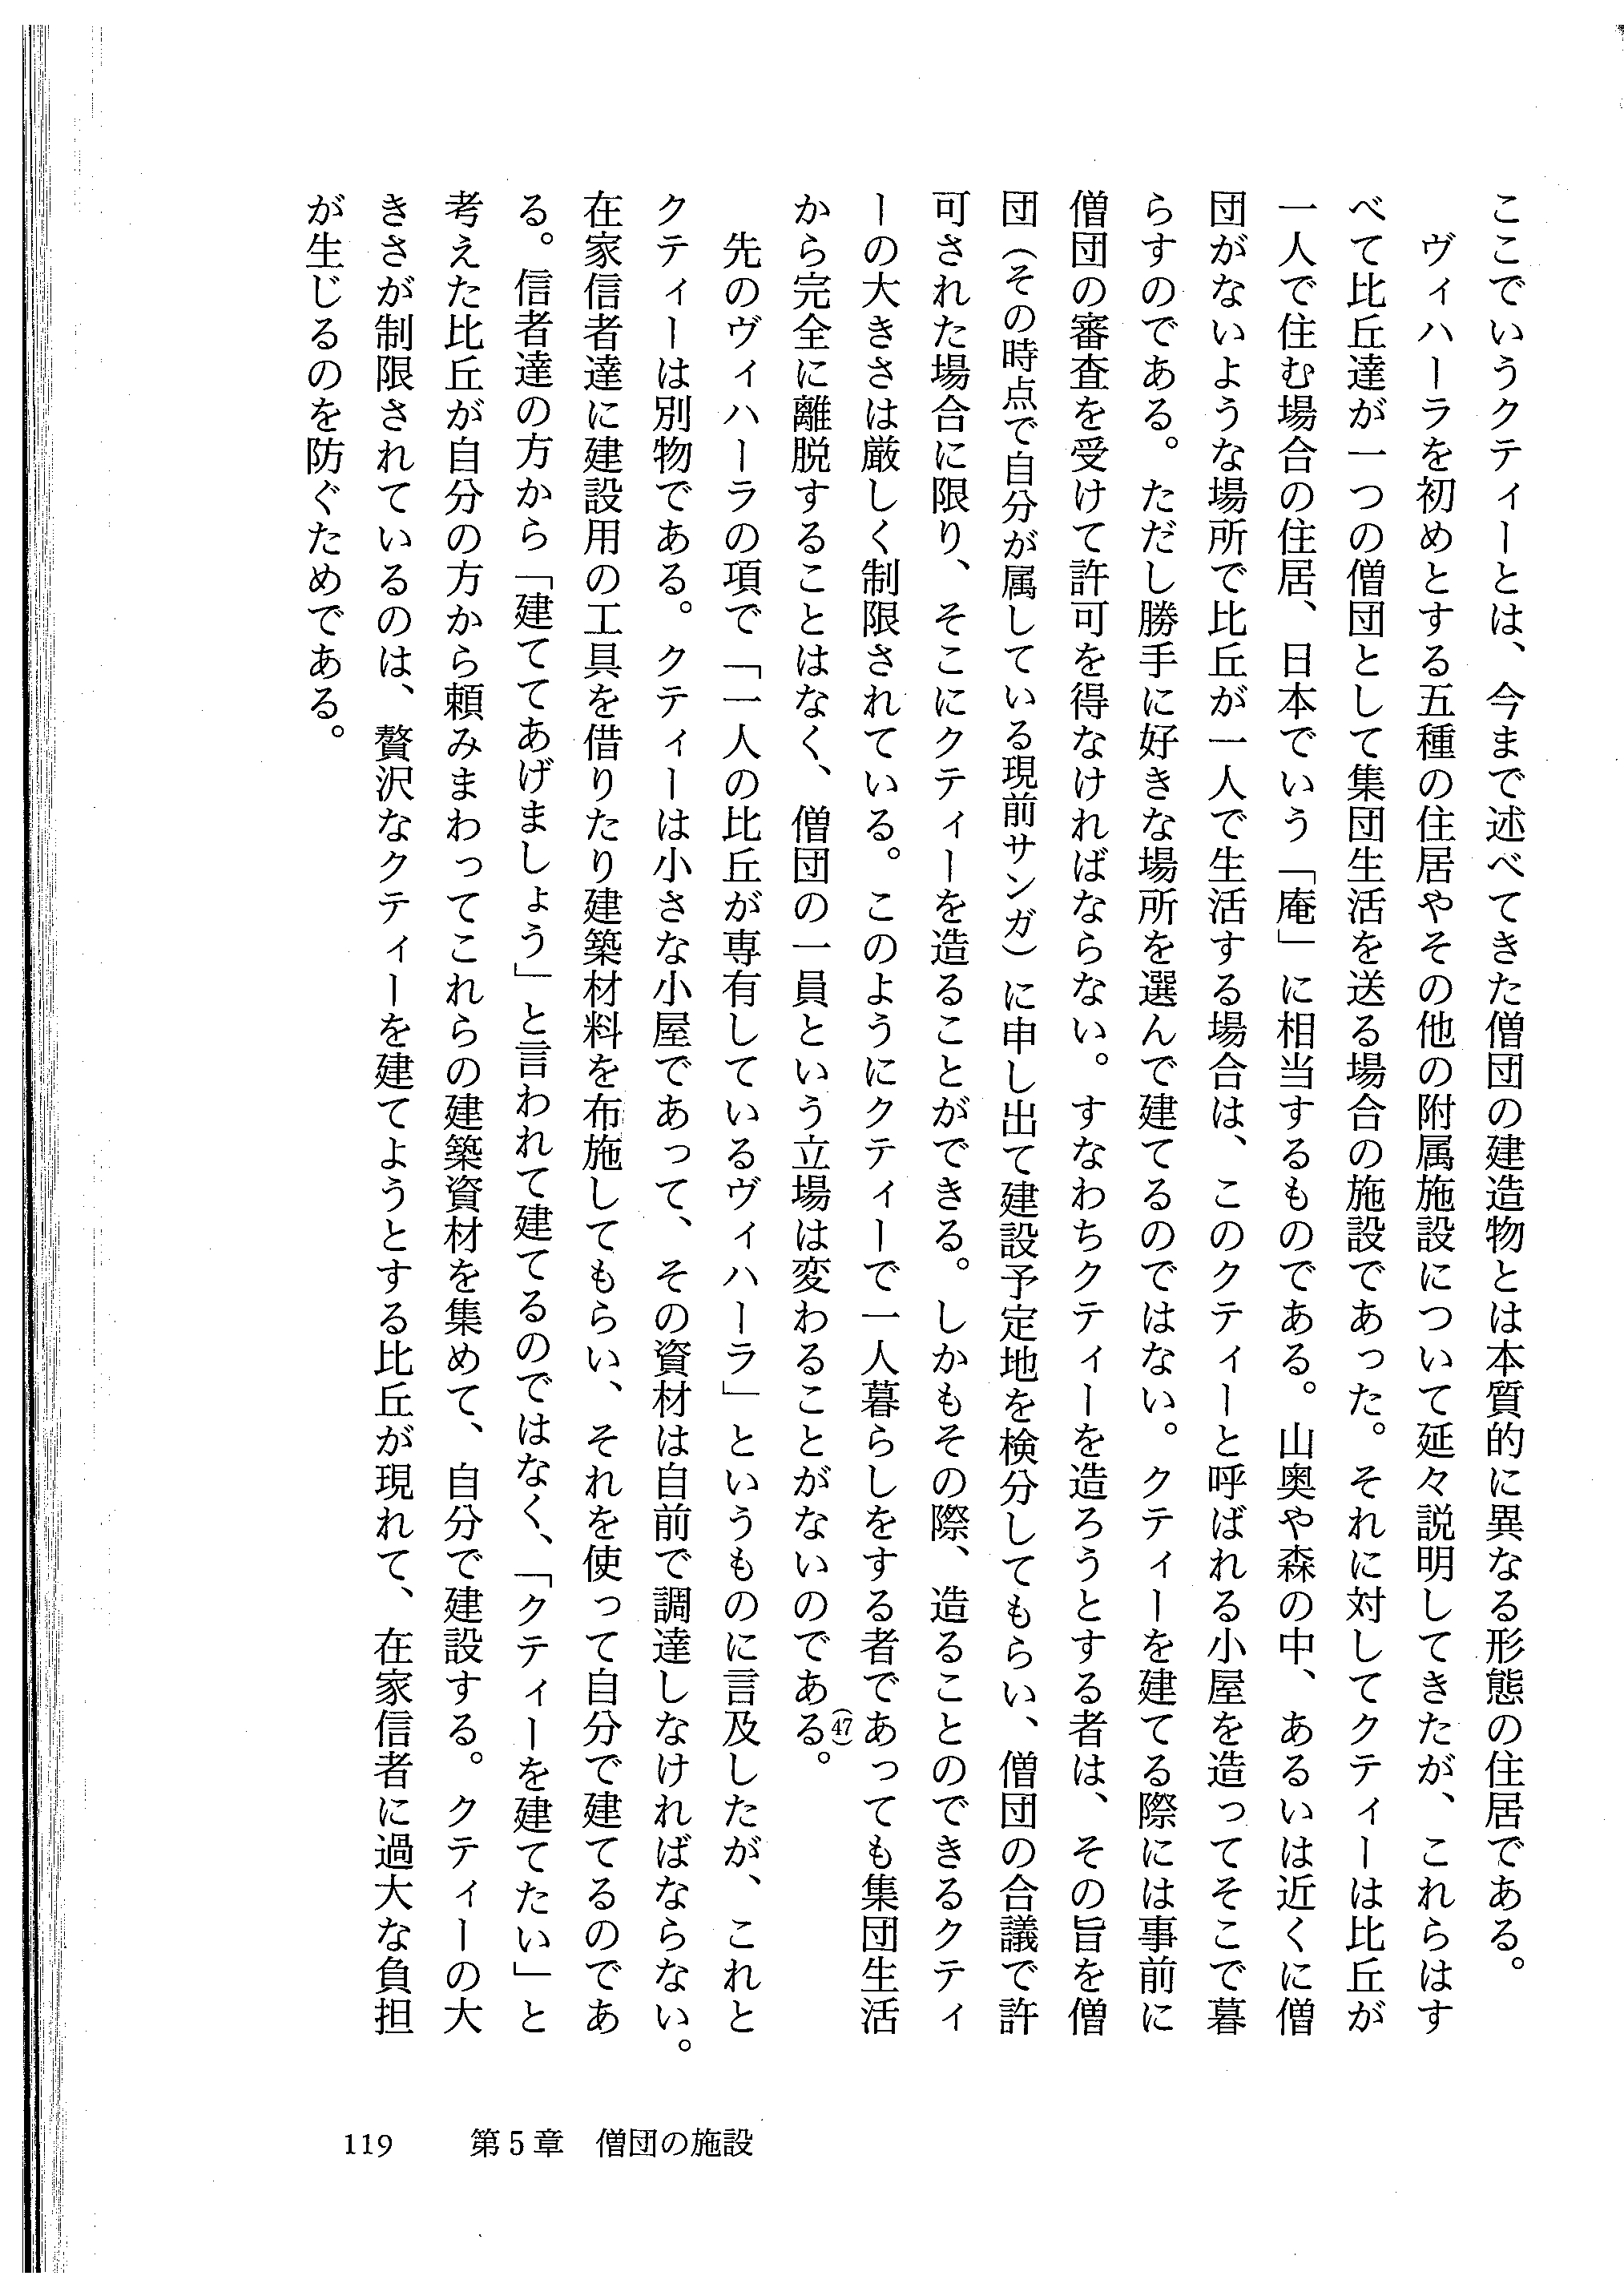 ここでいうクティーとは、今まで述べてきた僧団の建造物とは本質的に異なる形態の住居である。
ヴィハーラを初めとする五種の住居やその他の附属施設について延々説明してきたが、これらはす
べて比丘達が一つの僧団として集団生活を送る場合の施設であった。それに対してクティーは比丘が
一人で住む場合の住居、日本でいう「庵」に相当するものである。山奥や森の中、あるいは近くに僧
団がないような場所で比丘が一人で生活する場合は、このクティーと呼ばれる小屋を造ってそこで暮
らすのである。ただし勝手に好きな場所を選んで建てるのではない。クティーを建てる際には事前に
僧団の審査を受けて許可を得なければならない。すなわちクティーを造ろうとする者は、その旨を僧
団（その時点で自分が属している現前サンガ）に申し出て建設予定地を検分してもらい、僧団の合議で許
可された場合に限り、そこにクティーを造ることができる。しかもその際、造ることのできるクティ
ーの大きさは厳しく制限されている。このようにクティーで一人暮らしをする者であっても集団生活
から完全に離脱することはなく、僧団の一員という立場は変わることがないのである(47)。
先のヴィハーラの項で「一人の比丘が専有しているヴィハーラ」というものに言及したが、これと
クティーは別物である。クティーは小さな小屋であって、その資材は自前で調達しなければならない。
在家信者達に建設用の工具を借りたり建築材料を布施してもらい、それを使って自分で建てるのであ
る。信者達の方から「建ててあげましょう」と言われて建てるのではなく、「クティーを建てたい」と
考えた比丘が自分の方から頼みまわってこれらの建築資材を集めて、自分で建設する。クティーの大
きさが制限されているのは、贅沢なクティーを建てようとする比丘が現れて、在家信者に過大な負担
が生じるのを防ぐためである。
119 第5章 僧団の施設